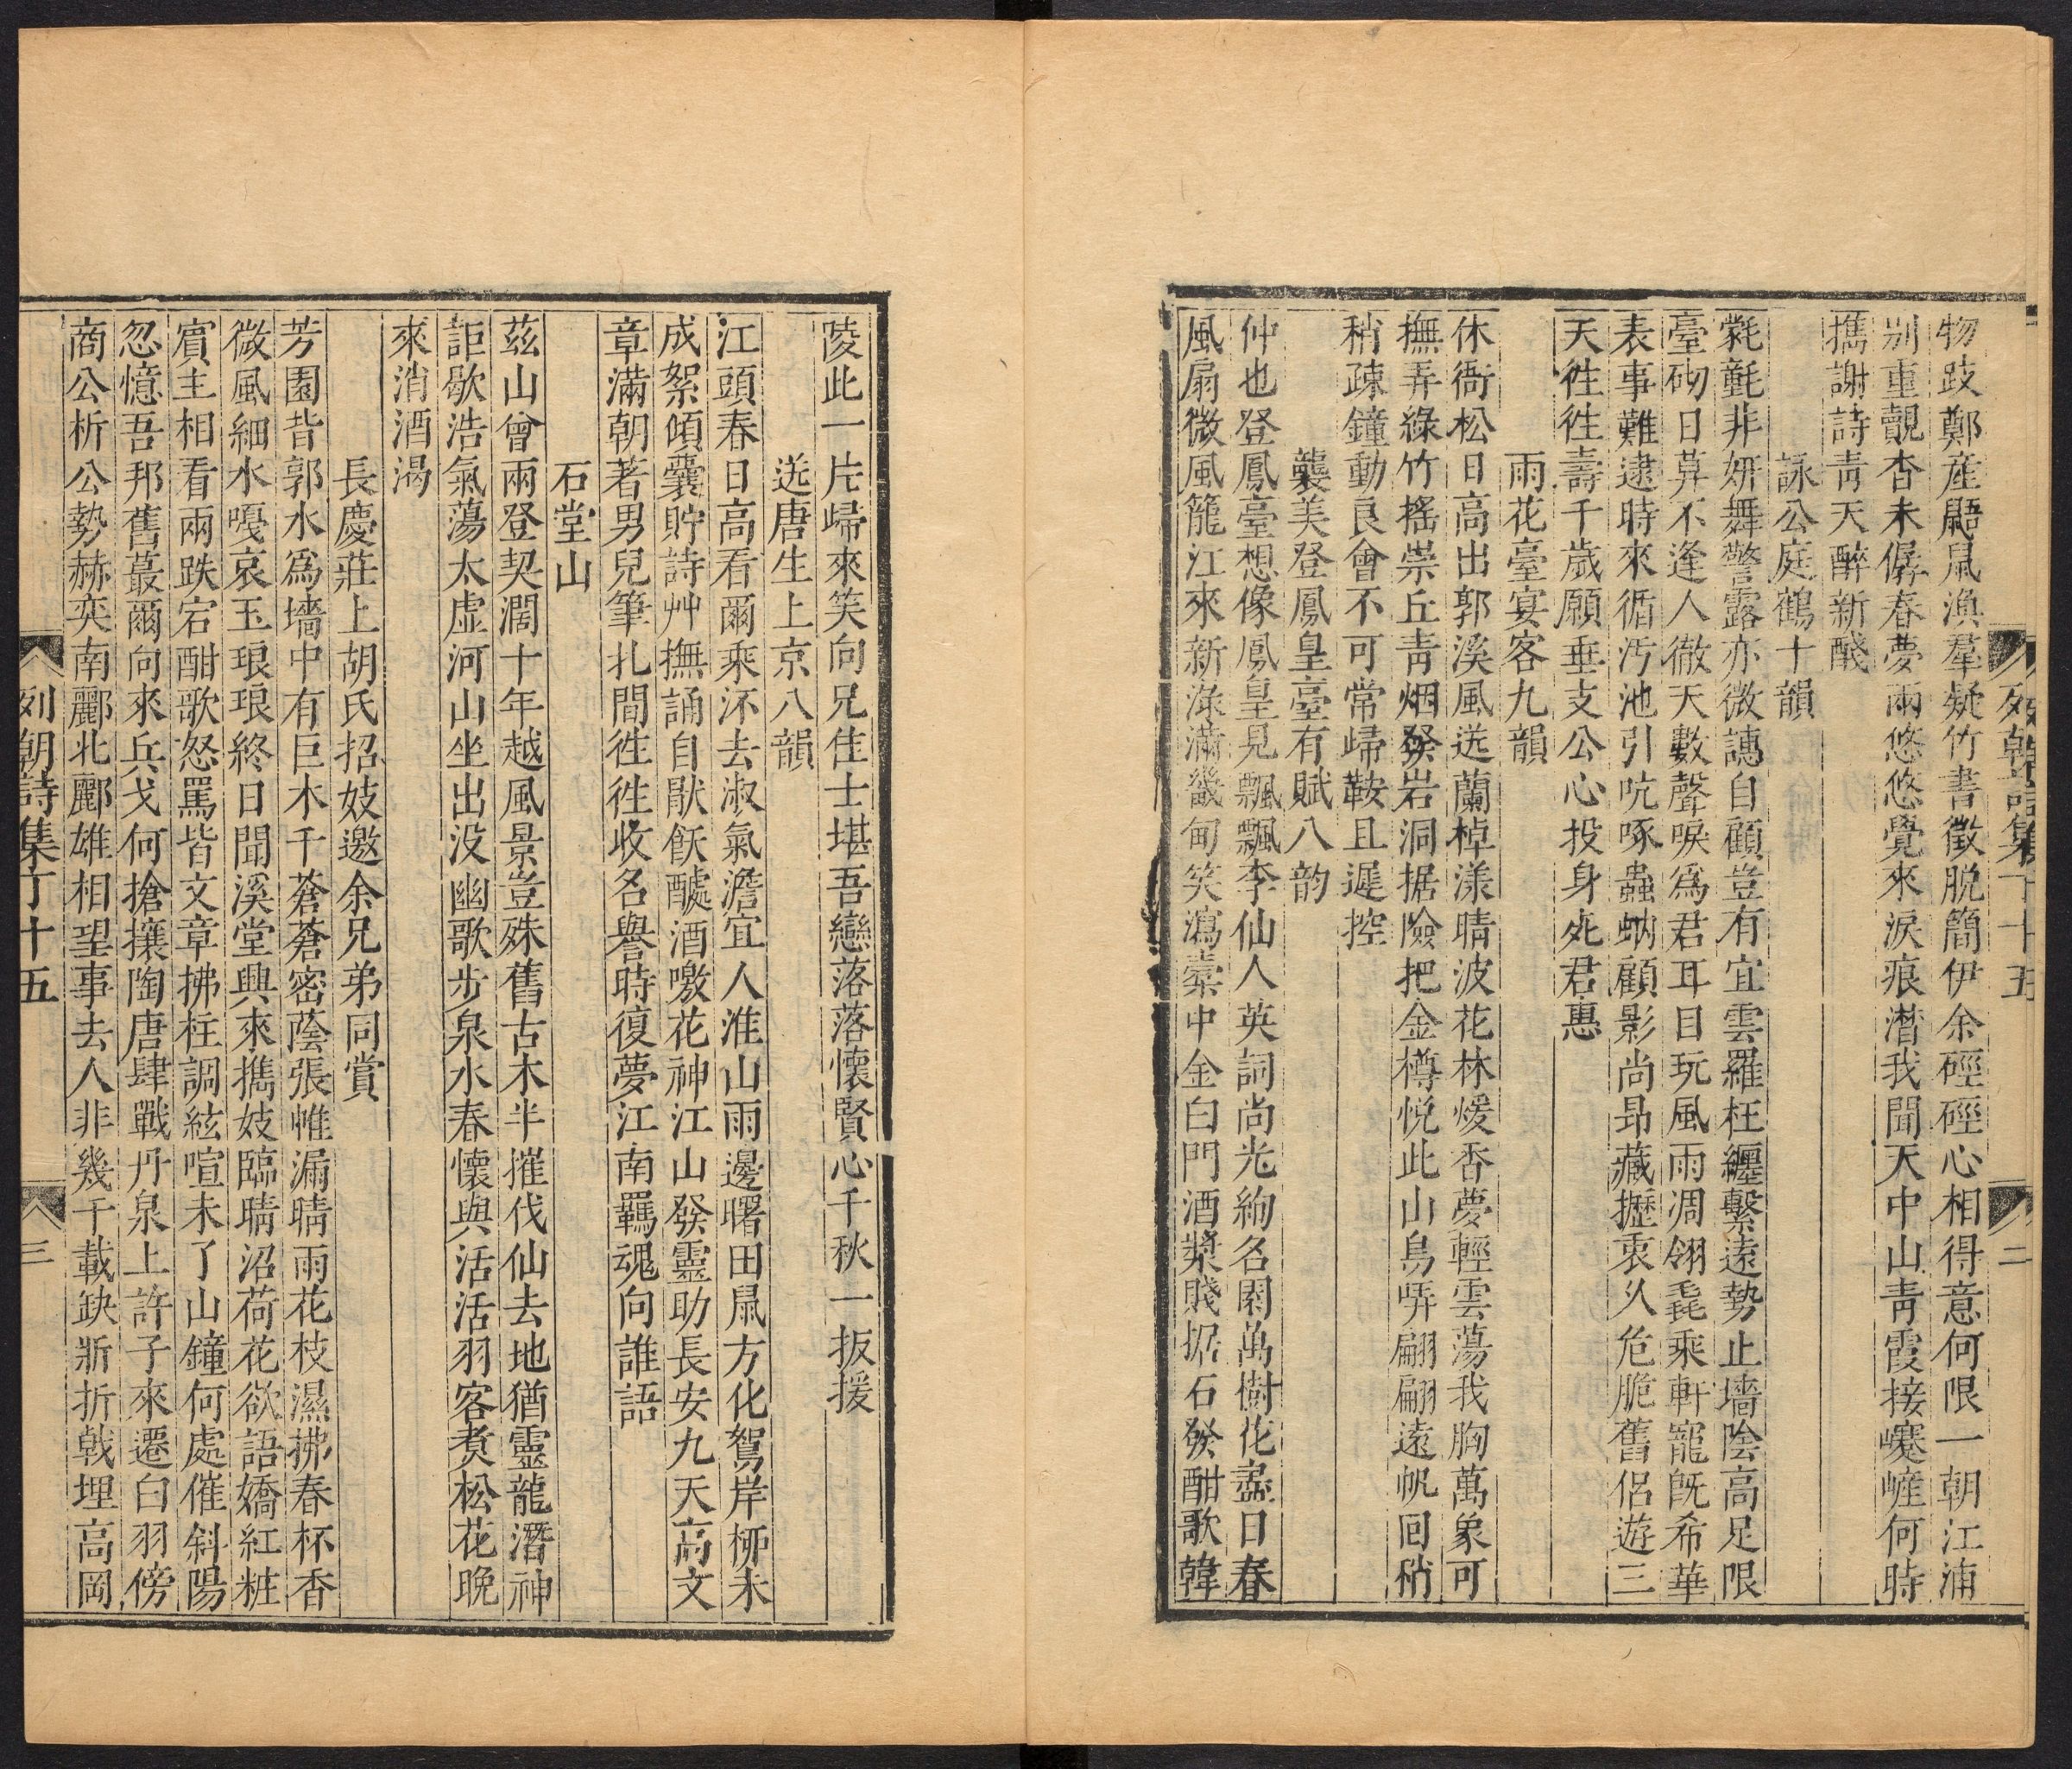 列朝詩集丁十五
二
物跂鄭産鼮鼠漁羣疑竹書徵脱簡伊余硜硜心相得意何限一朝江浦
别重覯杳未僝春夢兩悠悠覺來淚痕潸我聞天中山靑霞接巙㟴何時
擕謝詩靑天醉新醆
詠公庭鶴十韻
氋氃非妍舞警露亦微譓自顧豈有宜雲羅枉纒繫遠勢止墻陰高足限
臺砌日莽不逢人徹天數聲唳爲君耳目玩風雨凋翎毳乘軒寵旣希華
表事難逮時來循汚池引吭啄蟲蚋顧影尚昻藏攊褁乆危脆舊侣遊三
天徃徃壽千歲願垂支公心投身死君惠
雨花臺宴客九韻
休衙松日高出郭溪風送蘭棹漾晴波花林煖香夢輕雲蕩我胸萬象可
撫弄綠竹搖崇丘靑烟發岩洞据險把金樽悦此山鳥哢翩翩遠帆囘稍
稍疎鐘動良會不可常歸鞍且遲控
襲美登鳳皇臺有賦八韵
仲也登鳳臺想像鳳皇見飄飄李仙人英詞尚光絢名園萬樹花盡日春
風扇微風籠江來新淥滿畿甸笑瀉橐中金白門酒漿賤据石發酣歌韓
陵此一片歸來笑向兄佳士堪吾戀落落懷賢心千秋一扳援
送唐生上京八韻
江頭春日高看爾乘泝去淑氣澹宜人淮山雨邊曙田鼠方化鴽岸柳未
成絮傾囊貯詩艸撫誦自猒飫醵酒噭花神江山發靈助長安九天高文
章滿朝著男兒筆扎間徃徃收名譽時復夢江南羈魂向誰語
石堂山
茲山曾兩登契濶十年越風景豈殊舊古木半摧伐仙去地猶靈龍潛神
詎歇浩氣蕩太虚河山坐出没幽歌步泉水春懷與活活羽客煮松花晩
來消酒渴
長慶莊上胡氏招妓邀余兄弟同賞
芳園背郭水爲墻中有巨木千蒼蒼密蔭張帷漏晴雨花枝濕拂春杯香
微風細水嘎哀玉琅琅終日聞溪堂興來擕妓臨晴沼荷花欲語嬌紅粧
賓主相看兩跌宕酣歌怒罵皆文章拂柱調絃喧未了山鐘何處催斜陽
忽憶吾邦舊蕞爾向來兵戈何搶攘陶唐肆戰丹泉上許子來遷白羽傍
商公析公勢赫奕南酈北酈雄相望事去人非幾千載缺斨折戟埋高岡
列朝詩集丁十五
三